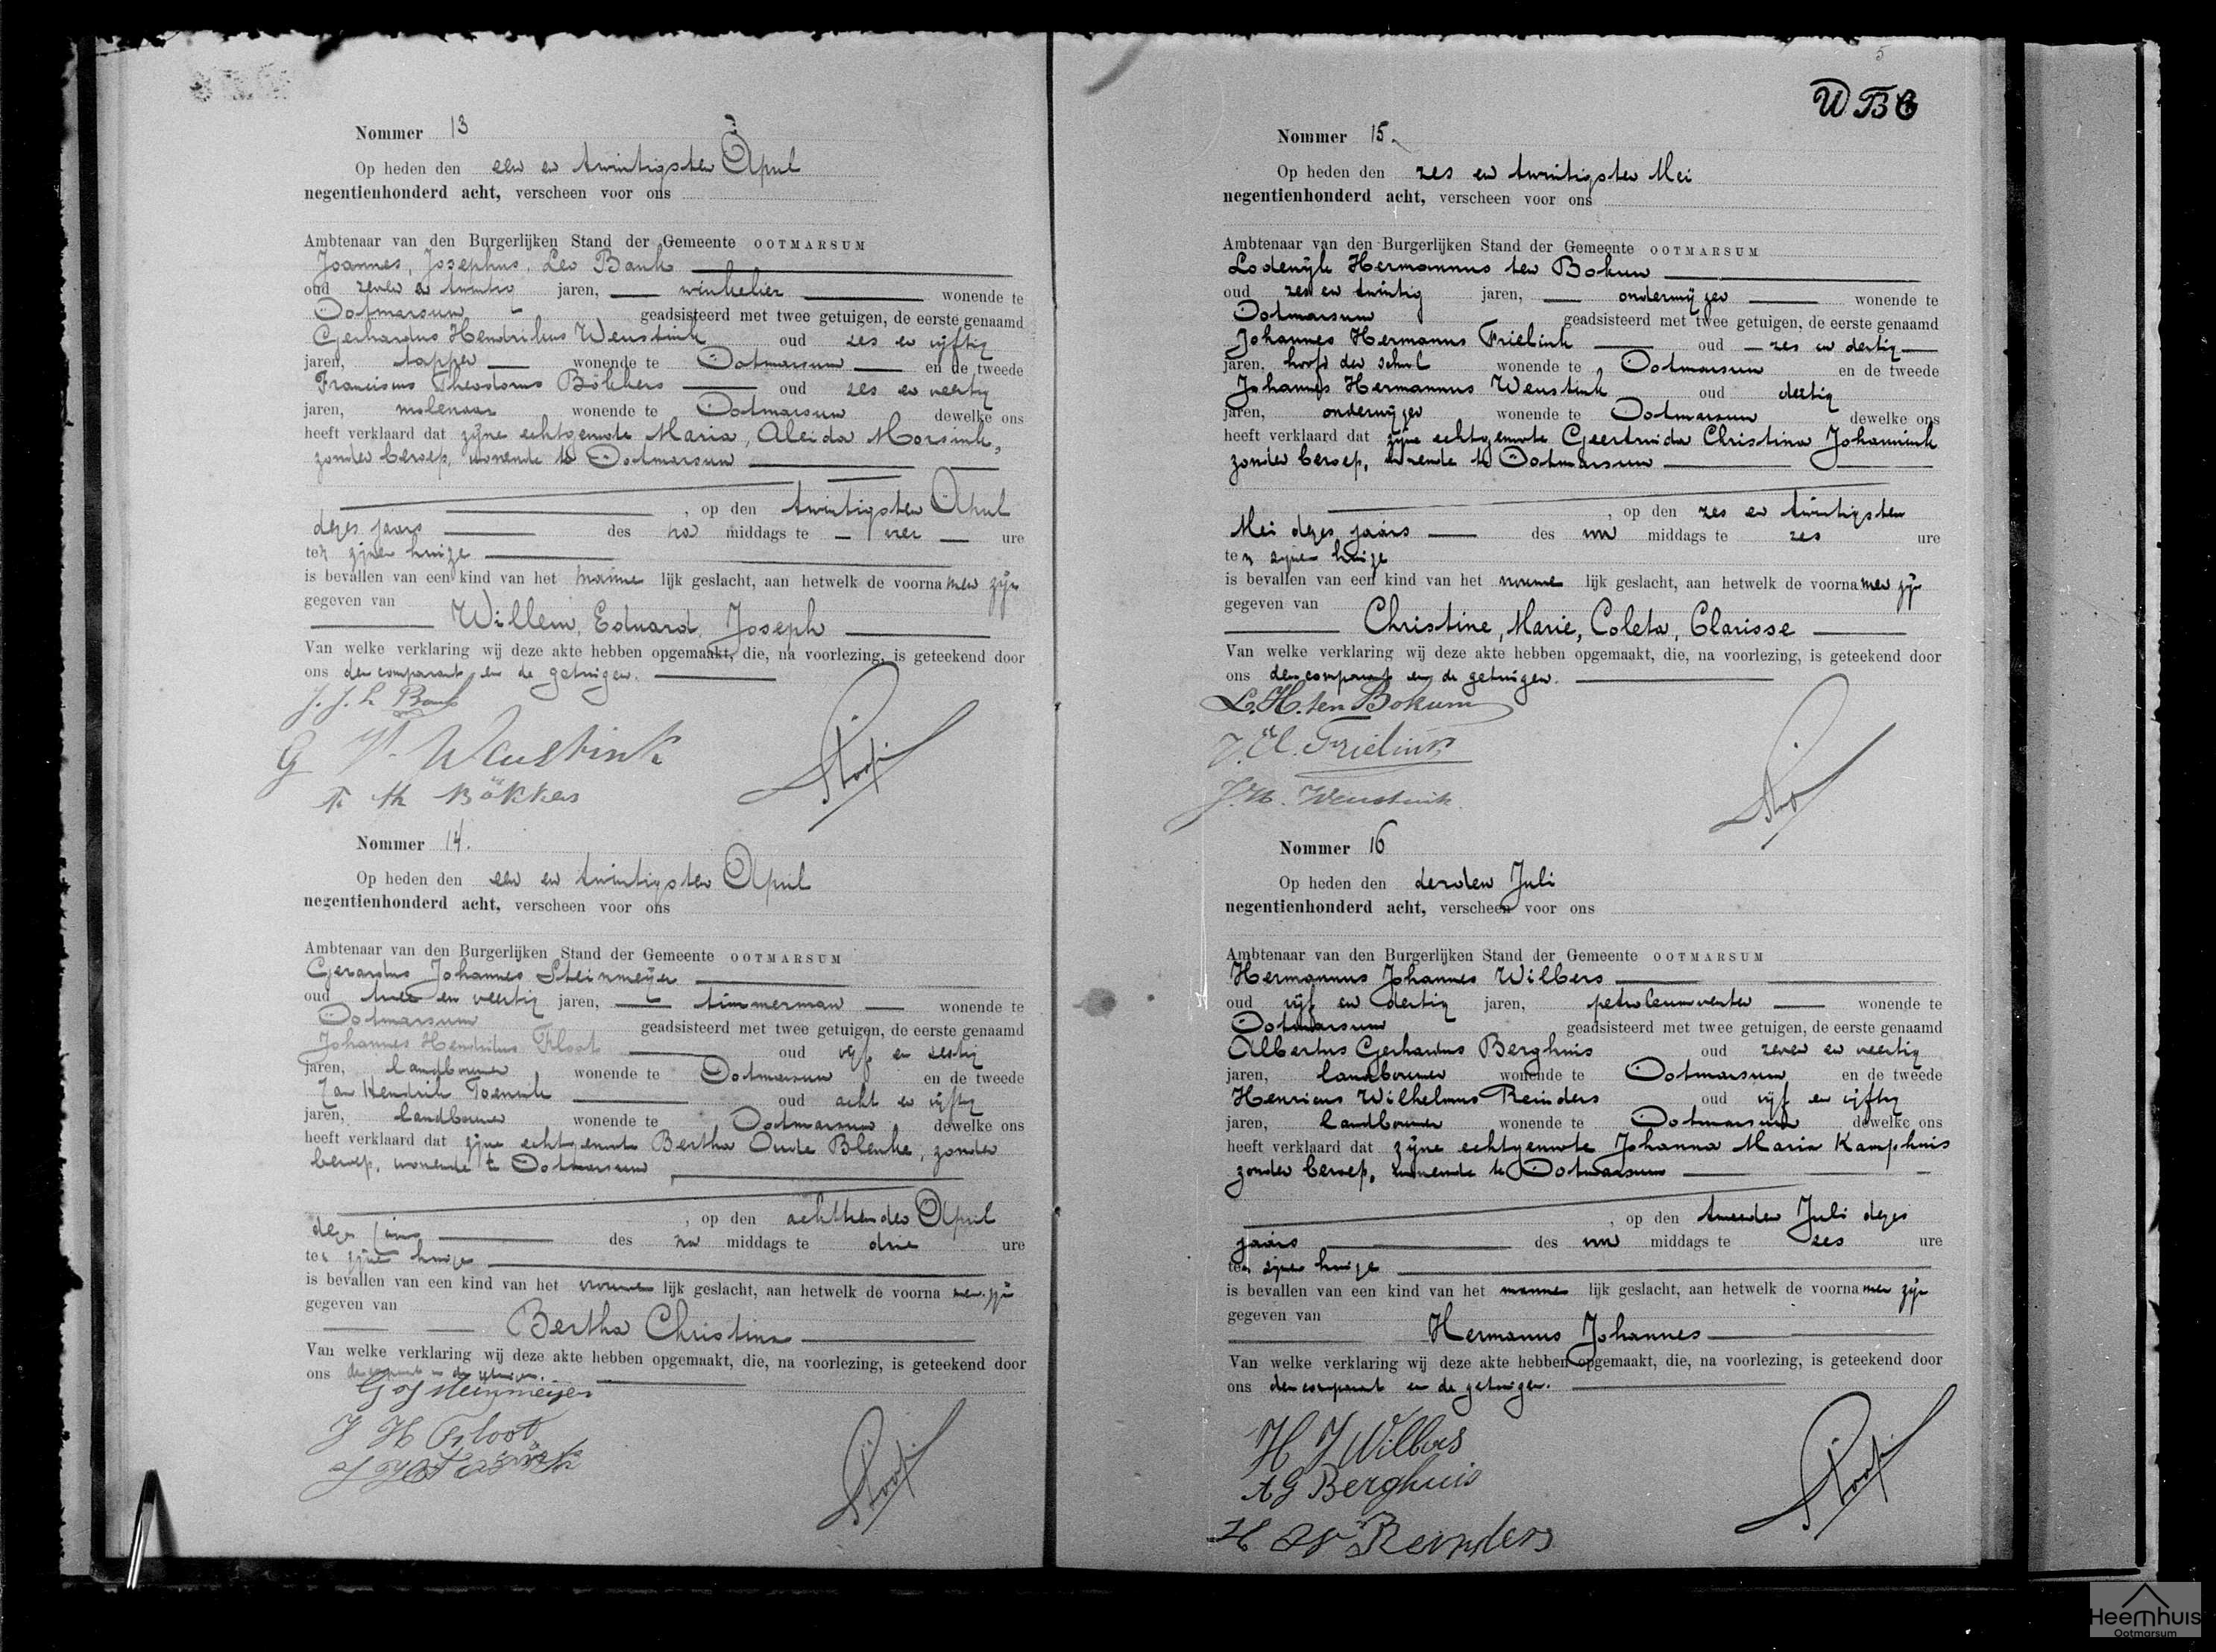 Nommer 13
Op heden den een en twintigsten April
negentienhonderd acht, verscheen voor ons
Ambtenaar van den Burgerlijken Stand der Gemeente OOTMARSUM
Joannes, Josephus, Leo Bank
oud zeven en twintig jaren, winkelier wonende te
Ootmarsum geadsisteerd met twee getuigen, de eerste genaamd
Gerhardus Hendrikus Weustink oud zes en vijftig
jaren, tapper wonende te Ootmarsum en de tweede
Franciscus Theodorus Bökkers oud zes en veertig
jaren, molenaar wonende te Ootmarsum dewelke ons
heeft verklaard dat zijne echtgenoote Maria, Aleida Morsink,
zonder beroep, wonende te Ootmarsum
, op den twintigsten April
dezes jaars des na middags te vier ure
ten zijnen huize
is bevallen van een kind van het manne lijk geslacht, aan hetwelk de voorna men zijn
gegeven van
Willem, Eduard, Joseph
Van welke verklaring wij deze akte hebben opgemaakt, die, na voorlezing, is geteekend door
ons den comparant en de getuigen.
J. J. L. Bank
G H. Weustink
F. Th Bökkers
Nommer 14.
Op heden den een en twintigsten April
negentienhonderd acht, verscheen voor ons
Ambtenaar van den Burgerlijken Stand der Gemeente OOTMARSUM
Gerardus Johannes Steinmeijer
oud twee en veertig jaren, timmerman wonende te
Ootmarsum geadsisteerd met twee getuigen, de eerste genaamd
Johannes Hendrikus Floot oud vijf en zestig
jaren, landbouwer wonende te Ootmarsum en de tweede
Jan Hendrik oud acht en vijftig
jaren, landbouwer wonende te Ootmarsum dewelke ons
heeft verklaard dat zijne echtgenoote Bertha Oude Blenke, zonder
beroep, wonende te Ootmarsum
, op den achttienden April
dezes jaars des na middags te drie ure
ten zijnen huize
is bevallen van een kind van het vrouwe lijk geslacht, aan hetwelk de voorna men zijn
gegeven van
Bertha Christina
Van welke verklaring wij deze akte hebben opgemaakt, die, na voorlezing, is geteekend door
ons den comparant en de getuigen.
G J Steinmeijer
J H Floot
5
WBC
Nommer 15
Op heden den zes en twintigsten Mei
negentienhonderd acht, verscheen voor ons
Ambtenaar van den Burgerlijken Stand der Gemeente OOTMARSUM
Lodewijk Hermannus ten Bokum
oud zes en twintig jaren, onderwijzer wonende te
Ootmarsum geadsisteerd met twee getuigen, de eerste genaamd
Johannes Hermanus Frielink oud zes en dertig
jaren, hoofd der school wonende te Ootmarsum en de tweede
Johannes Hermannus Weustink oud dertig
jaren, onderwijzer wonende te Ootmarsum dewelke ons
heeft verklaard dat zijne echtgenoote Geertruida Christina Johannink
zonder beroep, wonende te Ootmarsum
, op den zes en twintigsten
Mei dezes jaars des vm middags te zes ure
ten zijnen huize
is bevallen van een kind van het vrouwe lijk geslacht, aan hetwelk de voorna men zijn
gegeven van
Christine, Marie, Coleta, Clarisse
Van welke verklaring wij deze akte hebben opgemaakt, die, na voorlezing, is geteekend door
ons den comparant en de getuigen.
L. H. ten Bokum
J. H. Frielink
J. H. Weustink.
Nommer 16
Op heden den derden Juli
negentienhonderd acht, verscheen voor ons
Ambtenaar van den Burgerlijken Stand der Gemeente OOTMARSUM
Hermannus Johannes Wilbers
oud vijf en dertig jaren, petroleumventer wonende te
Ootmarsum geadsisteerd met twee getuigen, de eerste genaamd
Albertus Gerhardus Berghuis oud zeven en veertig
jaren, landbouwer wonende te Ootmarsum en de tweede
Henricus Wilhelmus Reinders oud vijf en vijftig
jaren, landbouwer wonende te Ootmarsum dewelke ons
heeft verklaard dat zijne echtgenoote Johanna Maria Kamphuis
zonder beroep, wonende te Ootmarsum
, op den tweeden Juli dezes
jaars des vm middags te zes ure
ten zijnen huize
is bevallen van een kind van het manne lijk geslacht, aan hetwelk de voorna men zijn
gegeven van
Hermanus Johannes
Van welke verklaring wij deze akte hebben opgemaakt, die, na voorlezing, is geteekend door
ons den comparant en de getuigen.
H J Wilbers
A G Berghuis
H W Reinders
Heemhuis
Ootmarsum